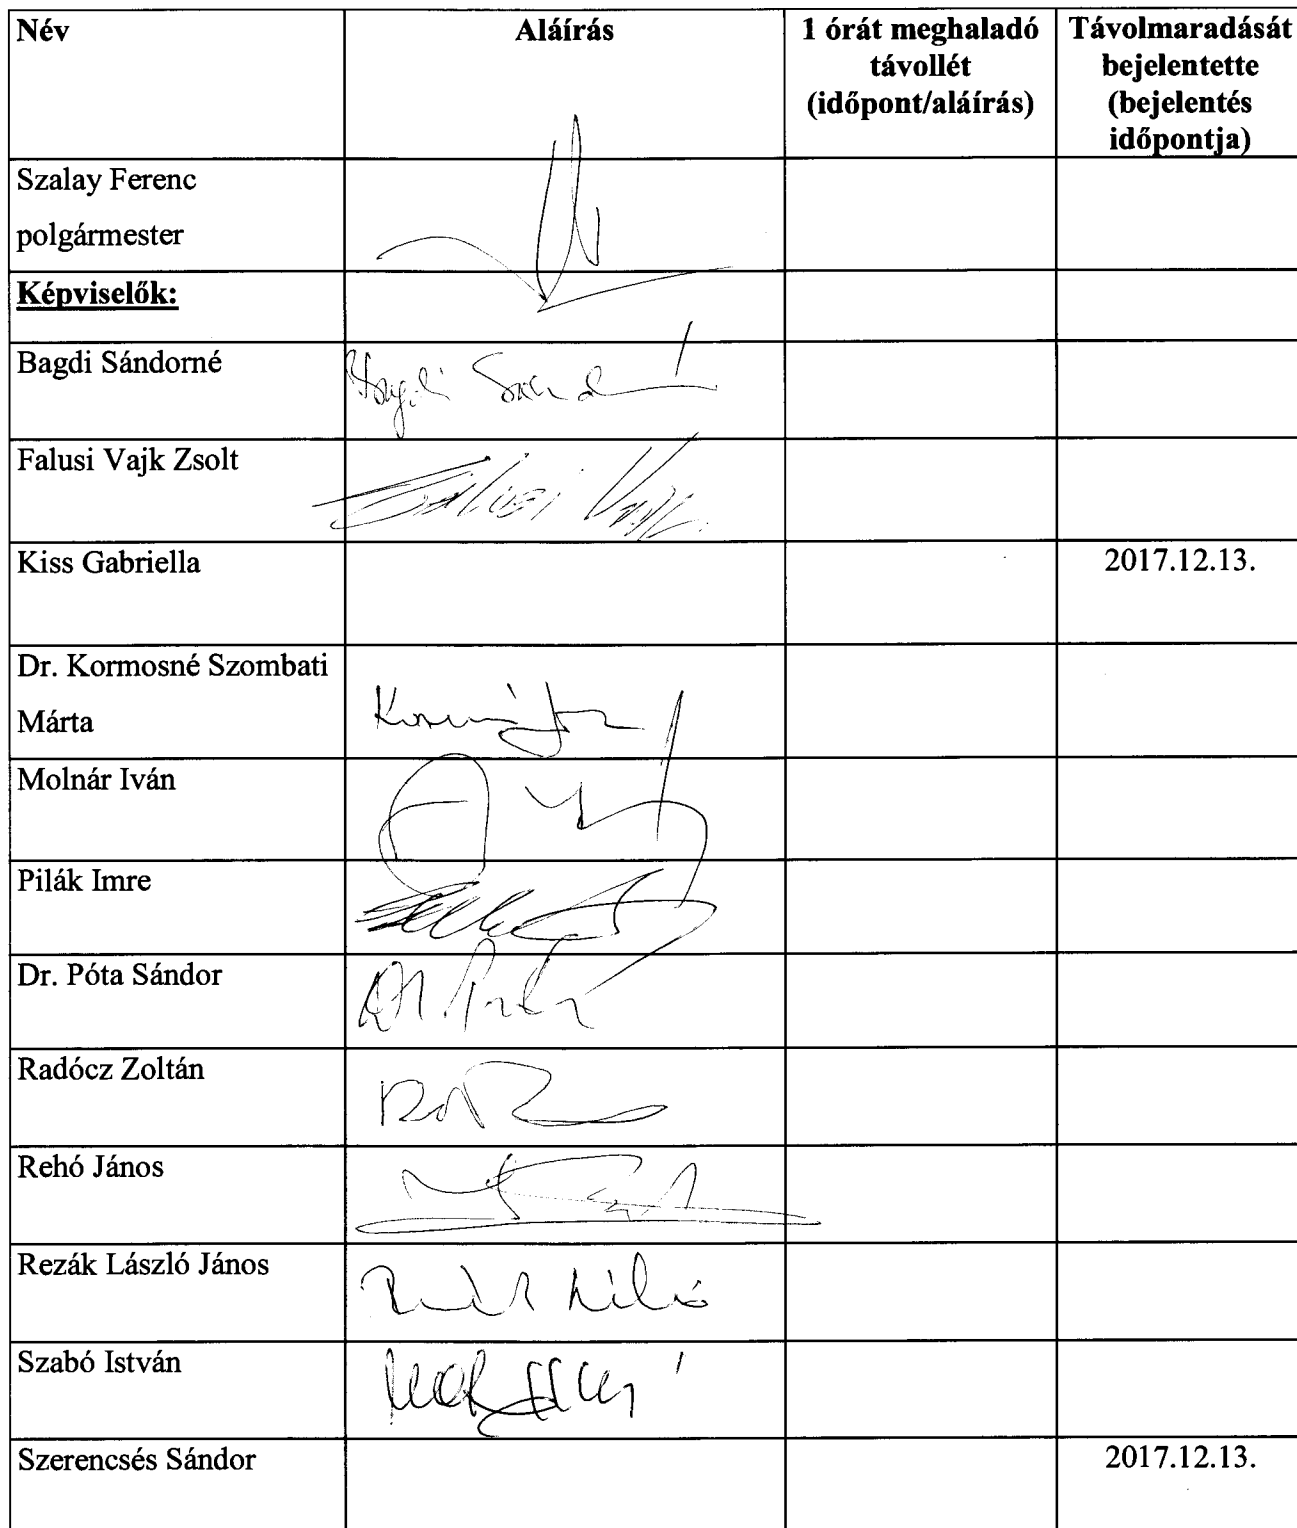 Név
Aláírás
1 órát meghaladó
távollét
(időpont/aláírás)
Távolmaradását
bejelentette
(bejelentés
időpontja)
Szalay Ferenc
polgármester
Képviselők:
Bagdi Sándorné
Bagdi
Falusi Vajk Zsolt
Falusi Vajk
Kiss Gabriella
2017.12.13.
Dr. Kormosné Szombati
Márta
Molnár Iván
Pilák Imre
Dr. Póta Sándor
Radócz Zoltán
Rehó János
Rezák László János
Szabó István
Szerencsés Sándor
2017.12.13.